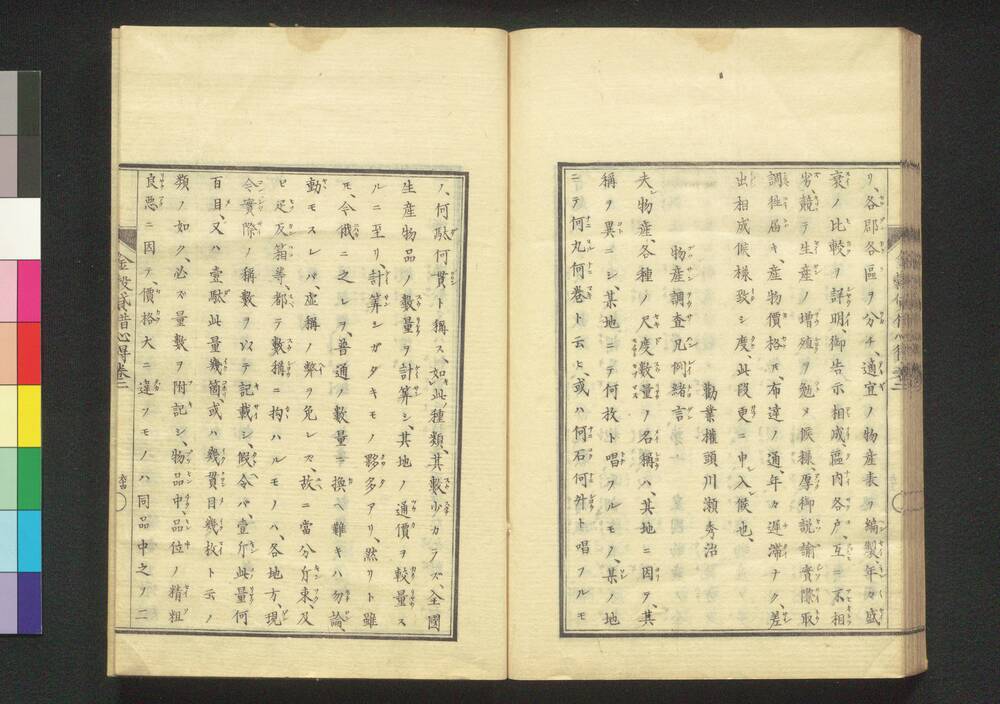 リ、各郡各區ヲ分チ、適宜ノ物産表ヲ編製年々盛
衰ノ比較ヲ詳明、御告示相成、區内各戸、互ニ不相
劣、競テ生産ノ増殖ヲ勉メ候様、厚御説諭實際取
調徃届キ、産物價格モ布達ノ通、年々遅滞ナク、差
出相成候様致シ度、此段更ニ申入候也、
勸業權頭川瀬秀治
物産調査凡例緒言
夫レ物産、各種ノ尺度數量ノ名稱ハ、其地ニ因ヲ、其
稱ヲ異ニシ、某地ニテ何枚ト唱フルモノ、某ノ地
ニテ何丸何巻ト云ヒ、或ハ何石何舛ト唱フルモ
ノ、何駄何貫ト稱ス、如此ノ種類、其數少カラズ、全國
生産物品ノ數量ヲ計算シ、其地ノ通價ヲ較量ス
ルニ至リ、計算シガタキモノ夥多アリ、然リト雖
モ、今俄ニ之レヲ、普通ノ數量ニ換ヘ難キハ勿論、
動モスレバ、虚稱ノ弊ヲ免レズ、故ニ當分斤束、及
ビ疋反箱等、都テ數稱ニ拘ハルモノハ、各地方、現
今實際ノ稱數ヲ以テ記載シ、假令バ、壹斤此量何
百目、又ハ壹駄此量幾箇、或ハ幾貫目幾枚ト云ノ
類ノ如ク、必ズ量數ヲ附記シ、物品中品位ノ精粗
良惡ニ因テ、價格大ニ違フモノハ同品中之ノ二
金穀貸借心得巻二